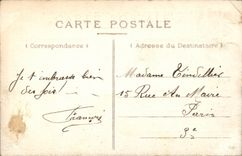 CARTE POSTALE
(Correspondance)
(Adresse du Destinataire)
Je t'embrasse bien
des fois!
François
Madame
15 Rue Au Maire
Paris
3e